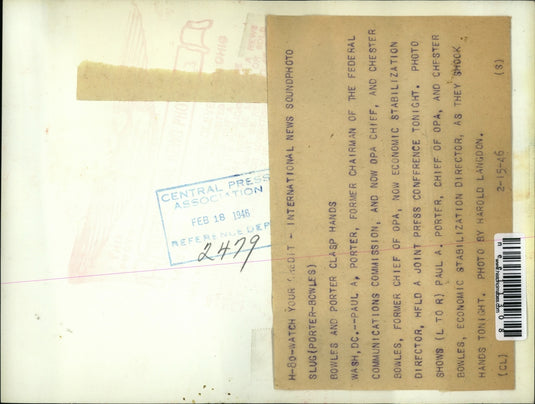 H-80-WATCH YOUR CREDIT - INTERNATIONAL NEWS SOUNDPHOTO
SLUG(PORTER-BOWLES)
BOWLES AND PORTER CLASP HANDS
WASH,DC.--PAUL A, PORTER, FORMER CHAIRMAN OF THE FEDERAL
COMMUNICATIONS COMMISSION, AND NOW OPA CHIEF, AND CHESTER
BOWLES, FORMER CHIEF OF OPA, NOW ECONOMIC STABILIZATION
DIRECTOR, HELD A JOINT PRESS CONFERENCE TONIGHT. PHOTO
SHOWS (L TO R) PAUL A. PORTER, CHIEF OF OPA, AND CHESTER
BOWLES, ECONOMIC STABILIZATION DIRECTOR, AS THEY SHOOK
HANDS TONIGHT. PHOTO BY HAROLD LANGDON.
(CL) 2-15-46 (S)
CENTRAL PRESS
ASSOCIATION
FEB 18 1946
REFERENCE DEPT
2479
OHIO